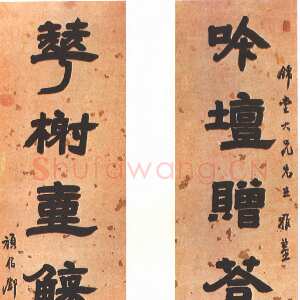 吟壇贈荅
錦堂大兄先生雅鑒
華榭重觴
顧伯
Shufawang.cn